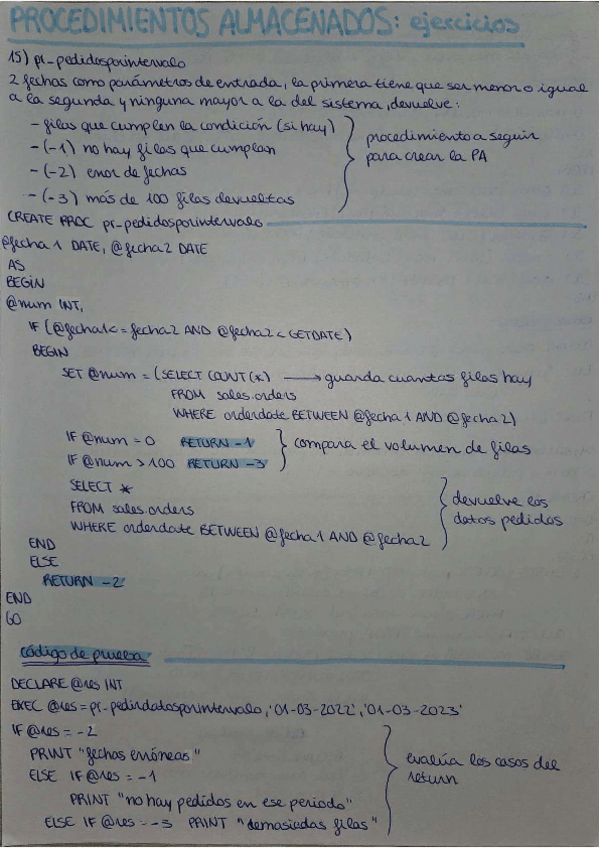 PROCEDIMIENTOS ALMACENADOS: ejercicios
15) pr-pedidosporintervalo
2 fechas como parámetros de entrada, la primera tiene que ser menor o igual
a la segunda y ninguna mayor a la del sistema, devuelve:
- filas que cumplen la condición (si hay)
- (-1) no hay filas que cumplan
- (-2) error de fechas
- (-3) más de 100 filas devueltas
procedimiento a seguir
para crear la PA
CREATE PROC pr-pedidosporintervalo
@fecha1 DATE, @fecha2 DATE
AS
BEGIN
@num INT,
IF (@fecha1<=fecha2 AND @fecha2 < GETDATE)
BEGIN
SET @num = (SELECT COUNT(*) → guarda cuantas filas hay
FROM sales.orders
WHERE orderdate BETWEEN @fecha1 AND @fecha2)
IF @num = 0 RETURN -1
IF @num > 100 RETURN -3
compara el volumen de filas
SELECT *
FROM sales.orders
WHERE orderdate BETWEEN @fecha1 AND @fecha2
devuelve los
datos pedidos
END
ELSE
RETURN -2
END
GO
código de prueba
DECLARE @res INT
EXEC @res = pr-pedirdatosporintervalo, '01-03-2022', '01-03-2023'
IF @res = -2
PRINT "fechas erróneas"
ELSE IF @res = -1
PRINT "no hay pedidos en ese periodo"
ELSE IF @res = -3 PRINT "demasiadas filas"
evalúa los casos del
return